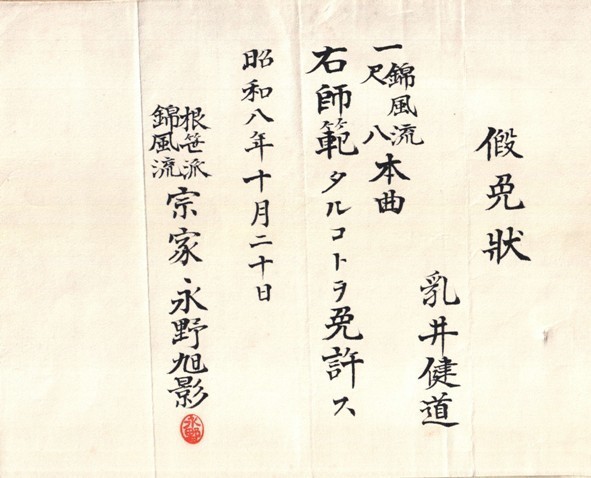 假免狀
乳井健道
一錦風流尺八本曲
右師範タルコトヲ免許ス
昭和八年十月二十日
根笹派錦風流宗家、永野旭影
永野